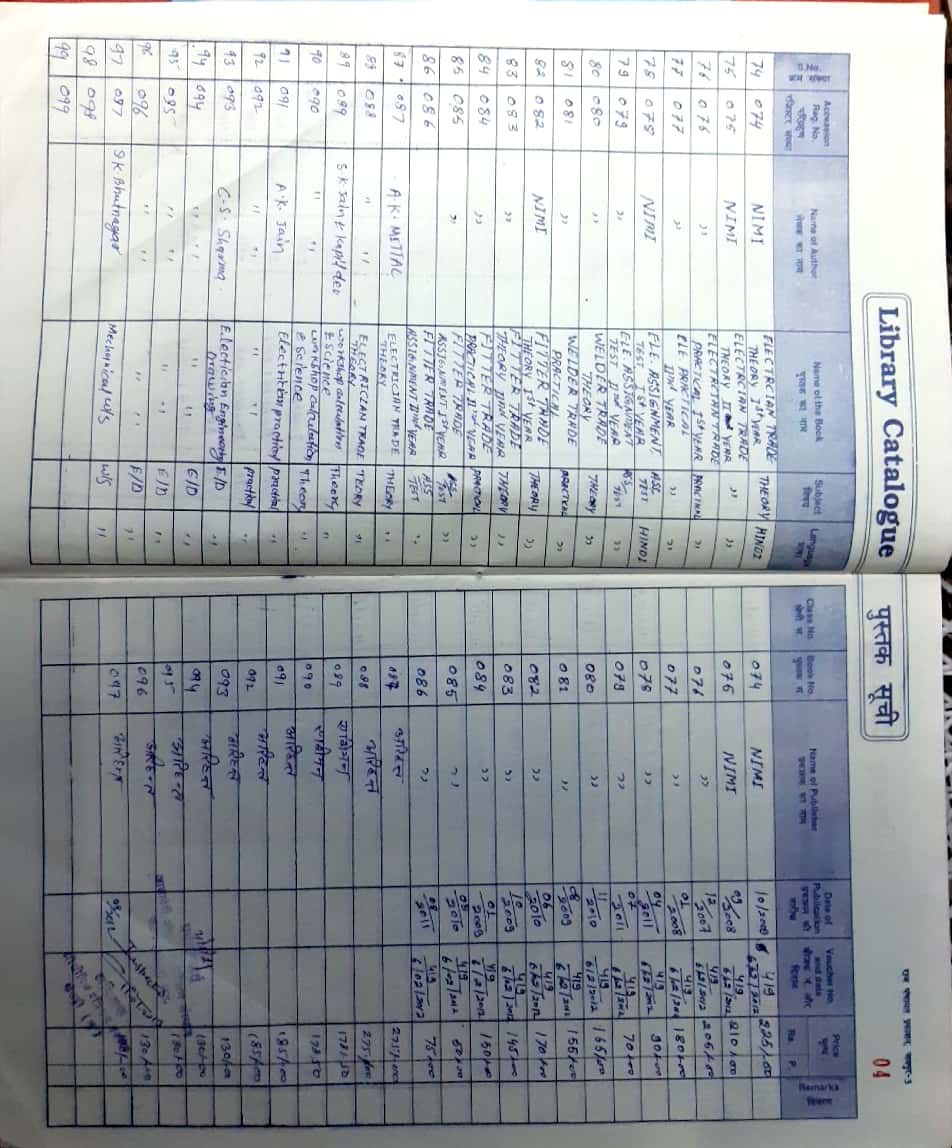 Library Catalogue पुस्तक सूची
04
S.No. क्रम संख्या | Accession Reg. No. | Name of Author लेखक का नाम | Name of the Book पुस्तक का नाम | Subject विषय | Language भाषा | Class No | Book No. | Name of Publisher प्रकाशक का नाम | Date of Publication | Voucher No. and date | Price मूल्य Rs. P. | Remarks
74 | 074 | NIMI | ELECTRCIAN TRADE THEORY Ist YEAR | THEORY | HINDI | 074 | NIMI | 10/2009 | 419 6/02/2012 | 225/-00
75 | 075 | NIMI | ELECTRCIAN TRADE THEORY IInd YEAR | ,, | 075 | NIMI | 09/2008 | 419 6/02/2012 | 210/-00
76 | 076 | ,, | ELECTRCIAN TRADE PRACTICAL Ist YEAR | PRACTICAL | ,, | 076 | ,, | 12/2007 | 419 6/02/2012 | 205/-00
77 | 077 | ,, | ELE PRACTICAL IInd YEAR | ,, | 077 | ,, | 01/2008 | 419 6/02/2012 | 180/-00
78 | 078 | NIMI | ELE ASSIGNMENT TEST Ist YEAR | ASS. TEST | HINDI | 078 | ,, | 04/2011 | 419 6/02/2012 | 90/-00
79 | 079 | ,, | ELE ASSIGNMENT TEST IInd YEAR | ASS. TEST | ,, | 079 | ,, | 07/2011 | 419 6/02/2012 | 70/-00
80 | 080 | ,, | WELDER TRADE THEORY | THEORY | ,, | 080 | ,, | 11/2010 | 419 6/2/2012 | 165/-00
81 | 081 | ,, | WELDER TRADE PRACTICAL | PRACTICAL | ,, | 081 | ,, | 08/2009 | 419 6/02/2012 | 155/-00
82 | 082 | NIMI | FITTER TRADE THEORY Ist YEAR | THEORY | ,, | 082 | ,, | 06/2010 | 419 6/02/2012 | 170/-00
83 | 083 | ,, | FITTER TRADE THEORY IInd YEAR | THEORY | ,, | 083 | ,, | 10/2009 | 419 6/02/2012 | 145/-00
84 | 084 | ,, | FITTER TRADE PRACTICAL IInd YEAR | PRACTICAL | ,, | 084 | ,, | 01/2009 | 419 6/2/2012 | 150/-00
85 | 085 | ,, | FITTER TRADE ASSIGNMENT Ist YEAR | ASS. TEST | ,, | 085 | ,, | 05/2010 | 419 6/02/2012 | 60/-00
86 | 086 | FITTER TRADE ASSIGNMENT IInd YEAR | ASS TEST | ,, | 086 | ,, | 08/2011 | 419 6/02/2012 | 75/-00
87 | 087 | A.K. MITTAL | ELECTRICIAN TRADE THEORY | THEORY | ,, | 087 | अरिहन्त | 225/-00
88 | 088 | ,, ,, | ELECTRICIAN TRADE THEORY | TEORY | ,, | 088 | अरिहन्त | 275/-00
89 | 089 | S.K. Jain & Kapil dev | workshop calculation & Science | Theory | ,, | 089
90 | 090 | ,, ,, | workshop calculation & Science | Theory | ,, | 090 | 178/50
91 | 091 | A.K. Jain | Electrician practical | practical | ,, | 091 | अरिहन्त | 185/-00
92 | 092 | ,, ,, | ,, ,, | practical | ,, | 092 | अरिहन्त | 185/-00
93 | 093 | C.S. Sharma | Electician Engineering Drawing | E/D | ,, | 093 | अरिहन्त | 130/-00
94 | 094 | ,, ,, | ,, ,, | E/D | ,, | 094 | अरिहन्त | 130/-00
95 | 095 | ,, ,, | ,, ,, | E/D | ,, | 095 | अरिहन्त | 130/-00
96 | 096 | ,, ,, | ,, ,, | E/D | ,, | 096 | अरिहन्त | 130/-00
97 | 087 | S.K. Bhatnagar | Mechanical W/S | W/S | ,, | 097
98 | 098
99 | 099